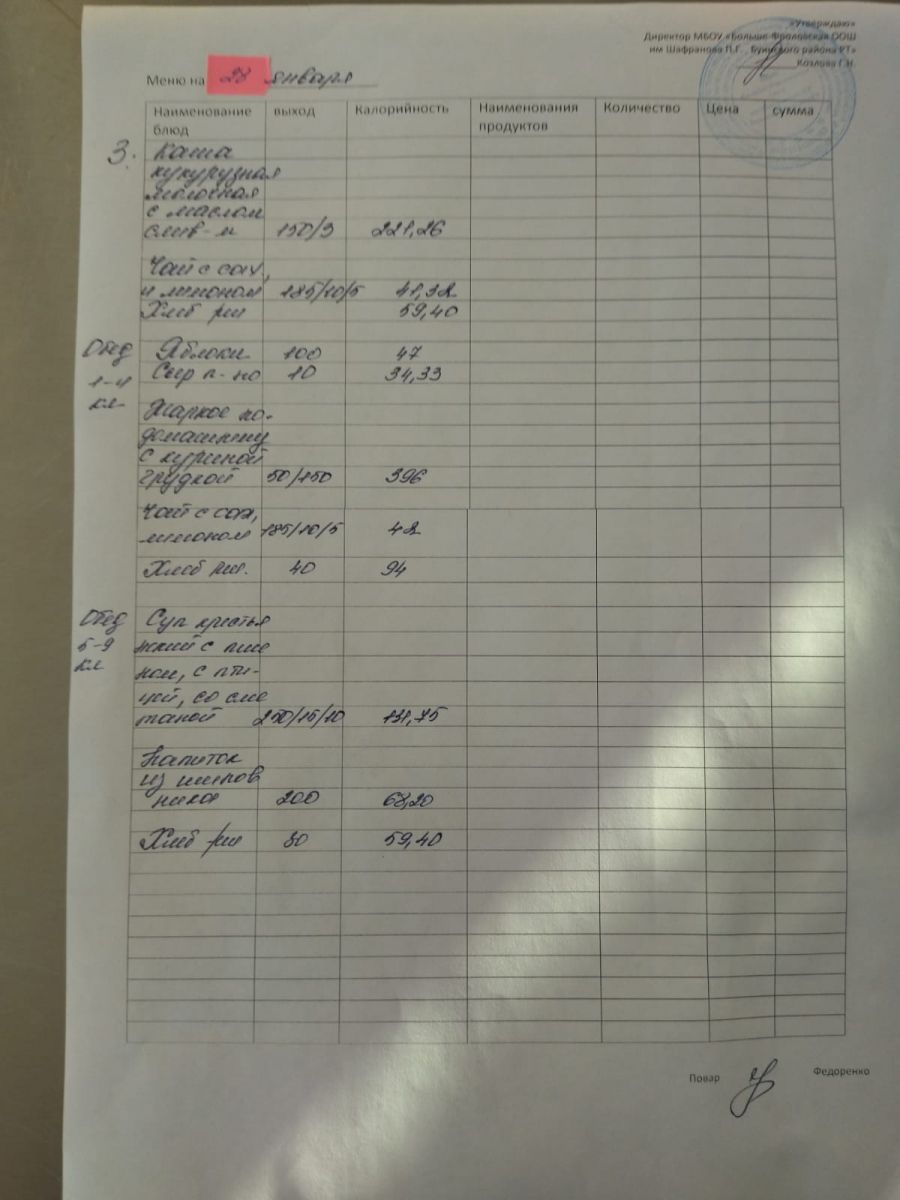 «Утверждаю»
Директор МБОУ «Больше-Фроловская ООШ
им Шафранова П.Г. , Буинского района РТ»
Козлова Г.Н.
Меню на 28 января
Наименование блюд выход Калорийность Наименования продуктов Количество Цена сумма
3. Каша
кукурузная
молочная
с маслом
слив-м 150/3 221,26
Чай с сах,
и лимоном 185/10/5 41,32
Хлеб рж 59,40
Обед Яблоки 100 47
1-4 Сыр п-но 10 34,33
кл Жаркое по-
домашнему
с куриной
грудкой 50/150 396
Чай с сах,
лимоном 185/10/5 42
Хлеб пш. 40 94
Обед Суп кресть
5-9 нский с пше
кл ном, с пти-
цей, со сме
таной 250/15/10 131,75
Напиток
из шипов
ника 200 68,20
Хлеб рж 30 59,40
Повар Федоренко